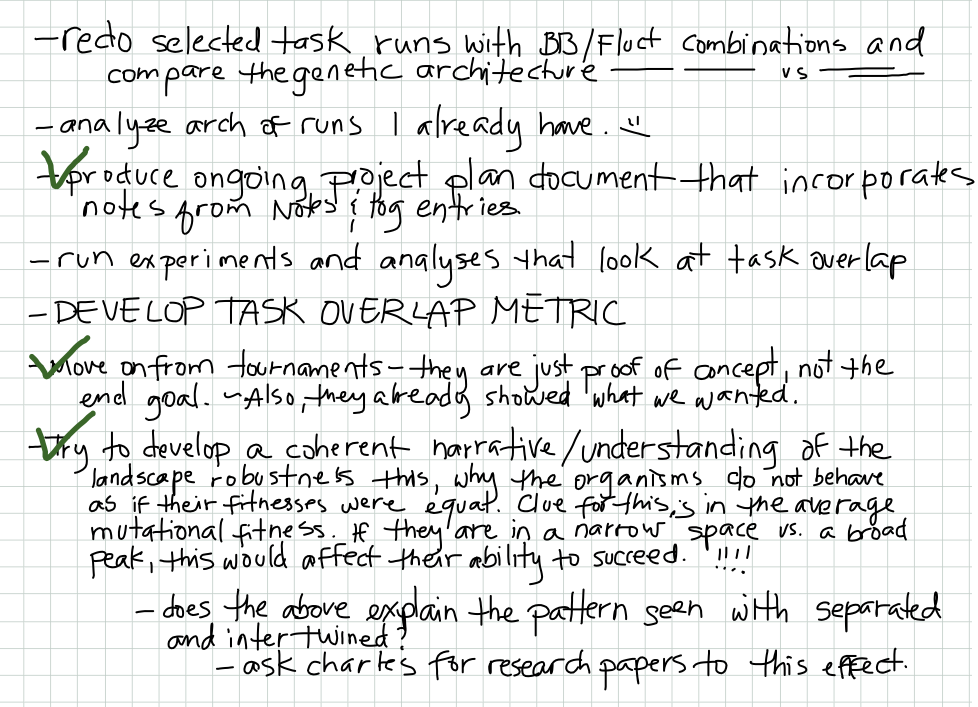 - redo selected task runs with BB/Fluct combinations and
compare the genetic architecture —— —— vs ══
- analyze arch of runs I already have. :)
- produce ongoing project plan document that incorporates
notes from Notes & log entries.
- run experiments and analyses that look at task overlap
- DEVELOP TASK OVERLAP METRIC
- Move on from tournaments - they are just proof of concept, not the
end goal. ~Also, they already showed what we wanted.
- Try to develop a coherent narrative/understanding of the
landscape robustness this, why the organisms do not behave
as if their fitnesses were equal. Clue for this is in the average
mutational fitness. If they are in a narrow space vs. a broad
peak, this would affect their ability to succeed. !!!!
- does the above explain the pattern seen with separated
and intertwined?
- ask charles for research papers to this effect.